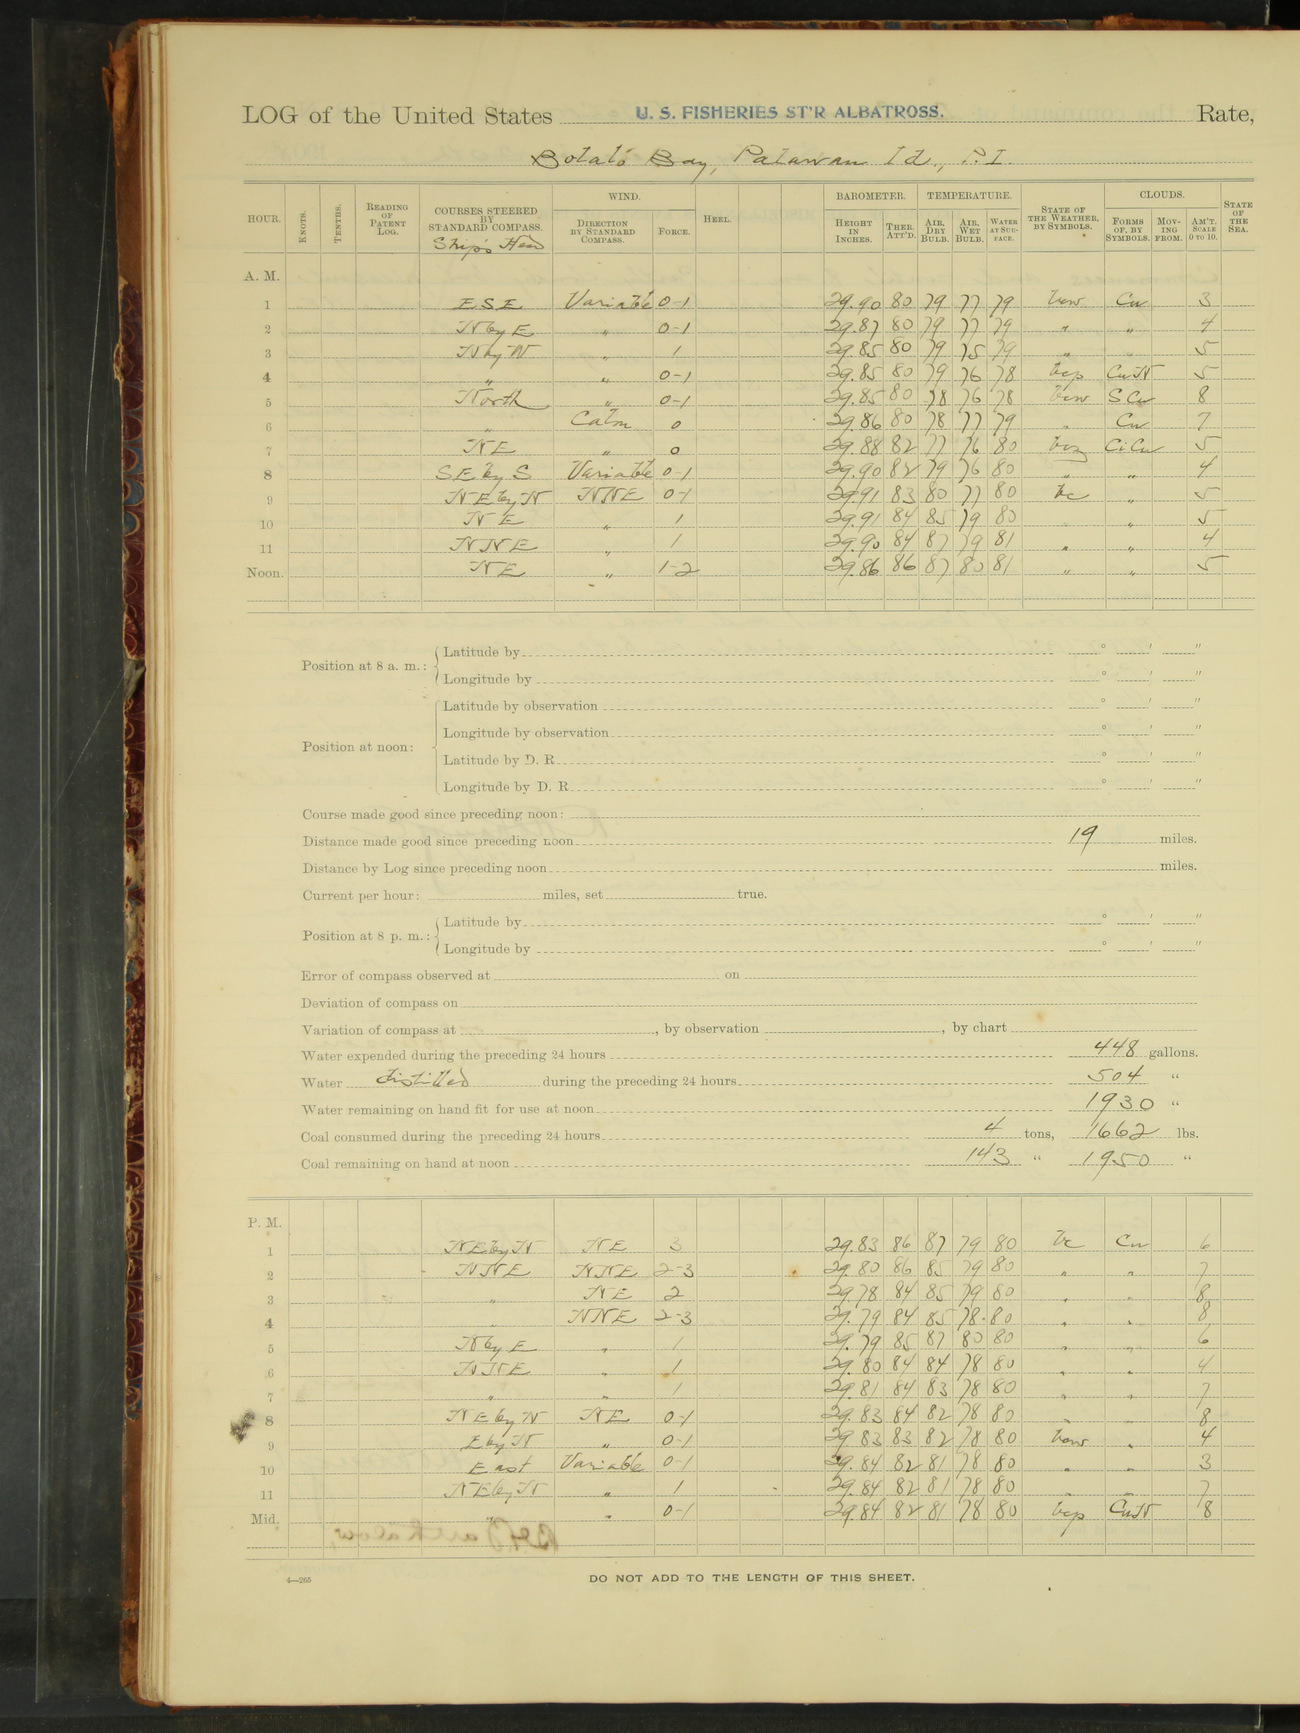 LOG of the United States U. S. FISHERIES ST'R ALBATROSS. Rate,
Bolaló Bay, Palawan Id., P.I.
HOUR. KNOTS. TENTHS. READING OF PATENT LOG. COURSES STEERED BY STANDARD COMPASS. Ship's Head WIND. DIRECTION BY STANDARD COMPASS. FORCE. HEEL. BAROMETER. HEIGHT IN INCHES. THER. ATT'D. TEMPERATURE. AIR, DRY BULB. AIR, WET BULB. WATER AT SURFACE. STATE OF THE WEATHER, BY SYMBOLS. CLOUDS. FORMS OF, BY SYMBOLS. MOVING FROM. AM'T. SCALE 0 TO 10. STATE OF THE SEA.
A. M.
1 ESE Variable 0-1 29.90 80 79 77 79 bcw Cu 3
2 N by E " 0-1 29.87 80 79 77 79 " " 4
3 N by W " 1 29.85 80 79 75 79 " " 5
4 " " 0-1 29.85 80 79 76 78 bcp CuN 5
5 North " 0-1 29.85 80 78 76 78 bcw SCu 8
6 " Calm 0 29.86 80 78 77 79 " Cu 7
7 NE " 0 29.88 82 77 76 80 bcz CiCu 5
8 SE by S Variable 0-1 29.90 82 79 76 80 " " 4
9 NE by N NNE 0-1 29.91 83 80 77 80 bc " 5
10 NE " 1 29.91 84 85 79 80 " " 5
11 NNE " 1 29.90 84 87 79 81 " " 4
Noon. NE " 1-2 29.86 86 87 80 81 " " 5
Position at 8 a. m.: Latitude by ° ′ ″
Longitude by ° ′ ″
Position at noon: Latitude by observation ° ′ ″
Longitude by observation ° ′ ″
Latitude by D. R. ° ′ ″
Longitude by D. R. ° ′ ″
Course made good since preceding noon:
Distance made good since preceding noon 19 miles.
Distance by Log since preceding noon miles.
Current per hour: miles, set true.
Position at 8 p. m.: Latitude by ° ′ ″
Longitude by ° ′ ″
Error of compass observed at on
Deviation of compass on
Variation of compass at , by observation , by chart
Water expended during the preceding 24 hours 448 gallons.
Water distilled during the preceding 24 hours 504 "
Water remaining on hand fit for use at noon 1930 "
Coal consumed during the preceding 24 hours 4 tons, 1662 lbs.
Coal remaining on hand at noon 143 " 1950 "
P. M.
1 NE by N NE 3 29.83 86 87 79 80 bc Cu 6
2 NNE NNE 2-3 29.80 86 85 79 80 " " 7
3 " NE 2 29.78 84 85 79 80 " " 8
4 " NNE 2-3 29.79 84 85 78 80 " " 8
5 N by E " 1 29.79 85 87 80 80 " " 6
6 NNE " 1 29.80 84 84 78 80 " " 4
7 " " 1 29.81 84 83 78 80 " " 7
8 NE by N NE 0-1 29.83 84 82 78 80 " " 8
9 E by N " 0-1 29.83 83 82 78 80 bcw " 4
10 East Variable 0-1 29.84 82 81 78 80 " " 3
11 NE by N " 1 29.84 82 81 78 80 " " 7
Mid. " " 0-1 29.84 82 81 78 80 bcp CuN 8
4—265
DO NOT ADD TO THE LENGTH OF THIS SHEET.